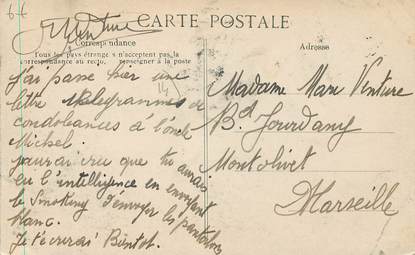 66
Venture
CARTE POSTALE
Correspondance
Adresse
Tous les pays étrangers n'acceptent pas la
correspondance au recto, renseigner à la poste
J'ai passé hier une
lettre télégramme de
condoléances à l'oncle
Michel.
J'aurai cru que tu aurais
eu l'intelligence en envoyant
le Smoking d'envoyer les pantalons
blanc.
Je t'écrirai Bientot.
Madame Marc Venture
Bd Jourdany
Montolivet
Marseille